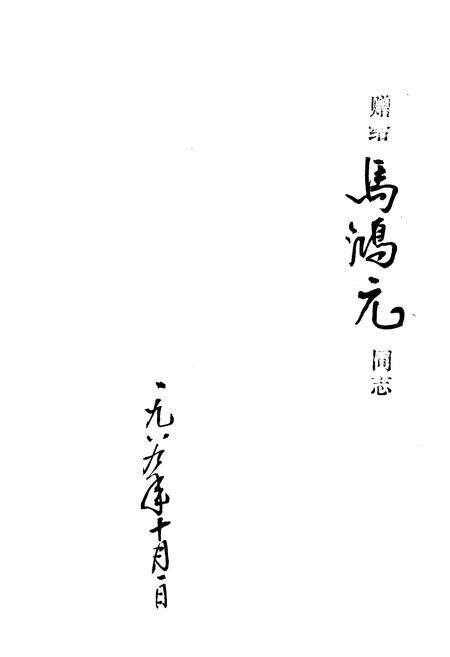 赠给馬鴻元同志
一九八九年十月一日